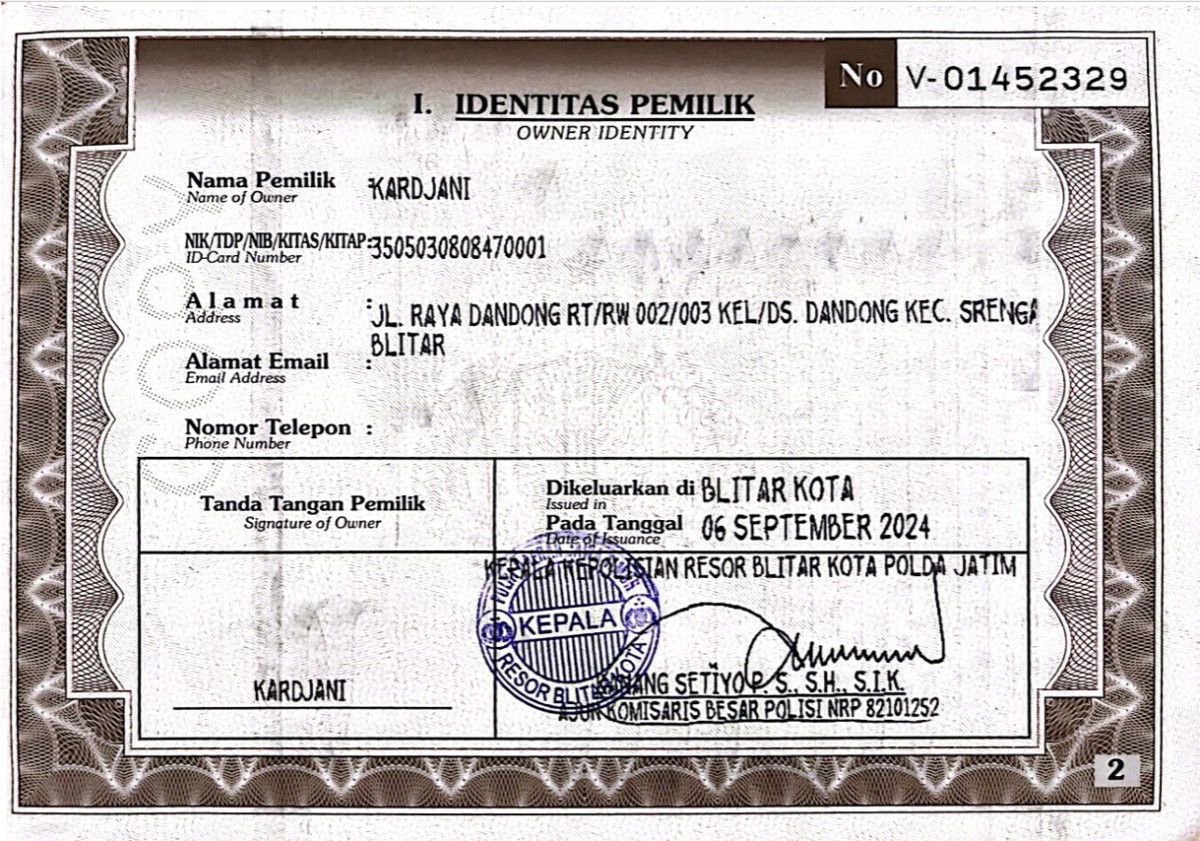 No V-01452329
I. IDENTITAS PEMILIK
OWNER IDENTITY
Nama Pemilik : KARDJANI
Name of Owner
NIK/TDP/NIB/KITAS/KITAP: 3505030808470001
ID-Card Number
Alamat : JL. RAYA DANDONG RT/RW 002/003 KEL/DS. DANDONG KEC. SRENGA
Address
BLITAR
Alamat Email :
Email Address
Nomor Telepon :
Phone Number
Tanda Tangan Pemilik
Signature of Owner
Dikeluarkan di BLITAR KOTA
Issued in
Pada Tanggal 06 SEPTEMBER 2024
Date of Issuance
KEPALA KEPOLISIAN RESOR BLITAR KOTA POLDA JATIM
KEPALA
RESOR BLITAR KOTA
KARDJANI
SETIYO P. S., S.H., S.I.K.
AJUN KOMISARIS BESAR POLISI NRP 82101252
2